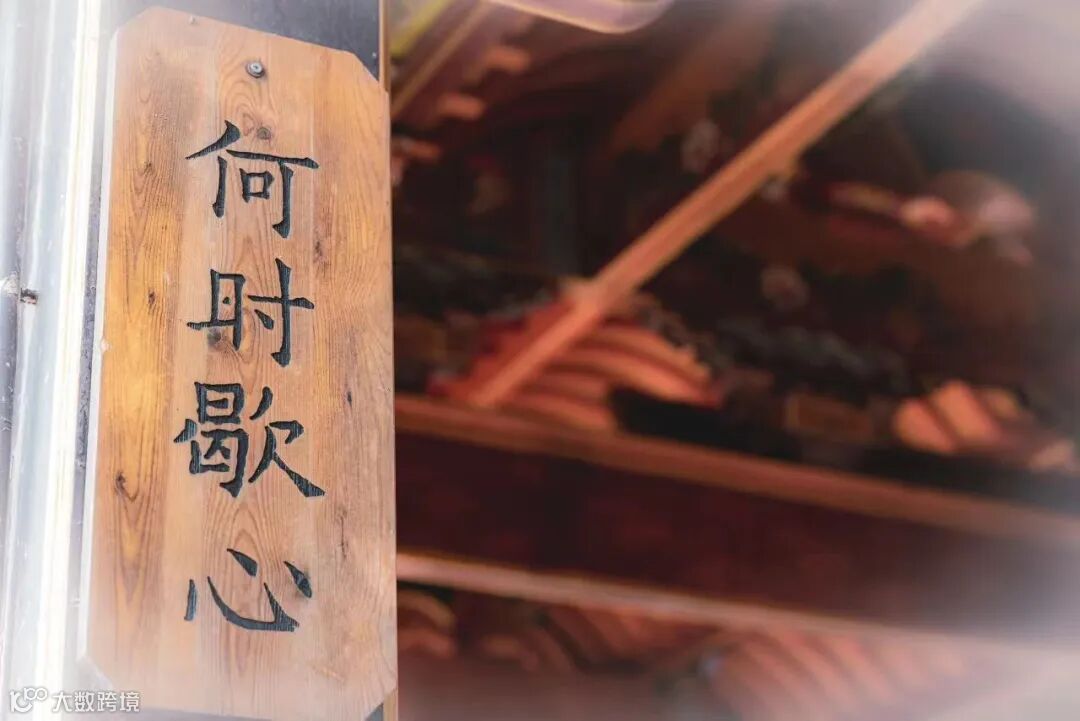 何时歇心
100 大数跨境